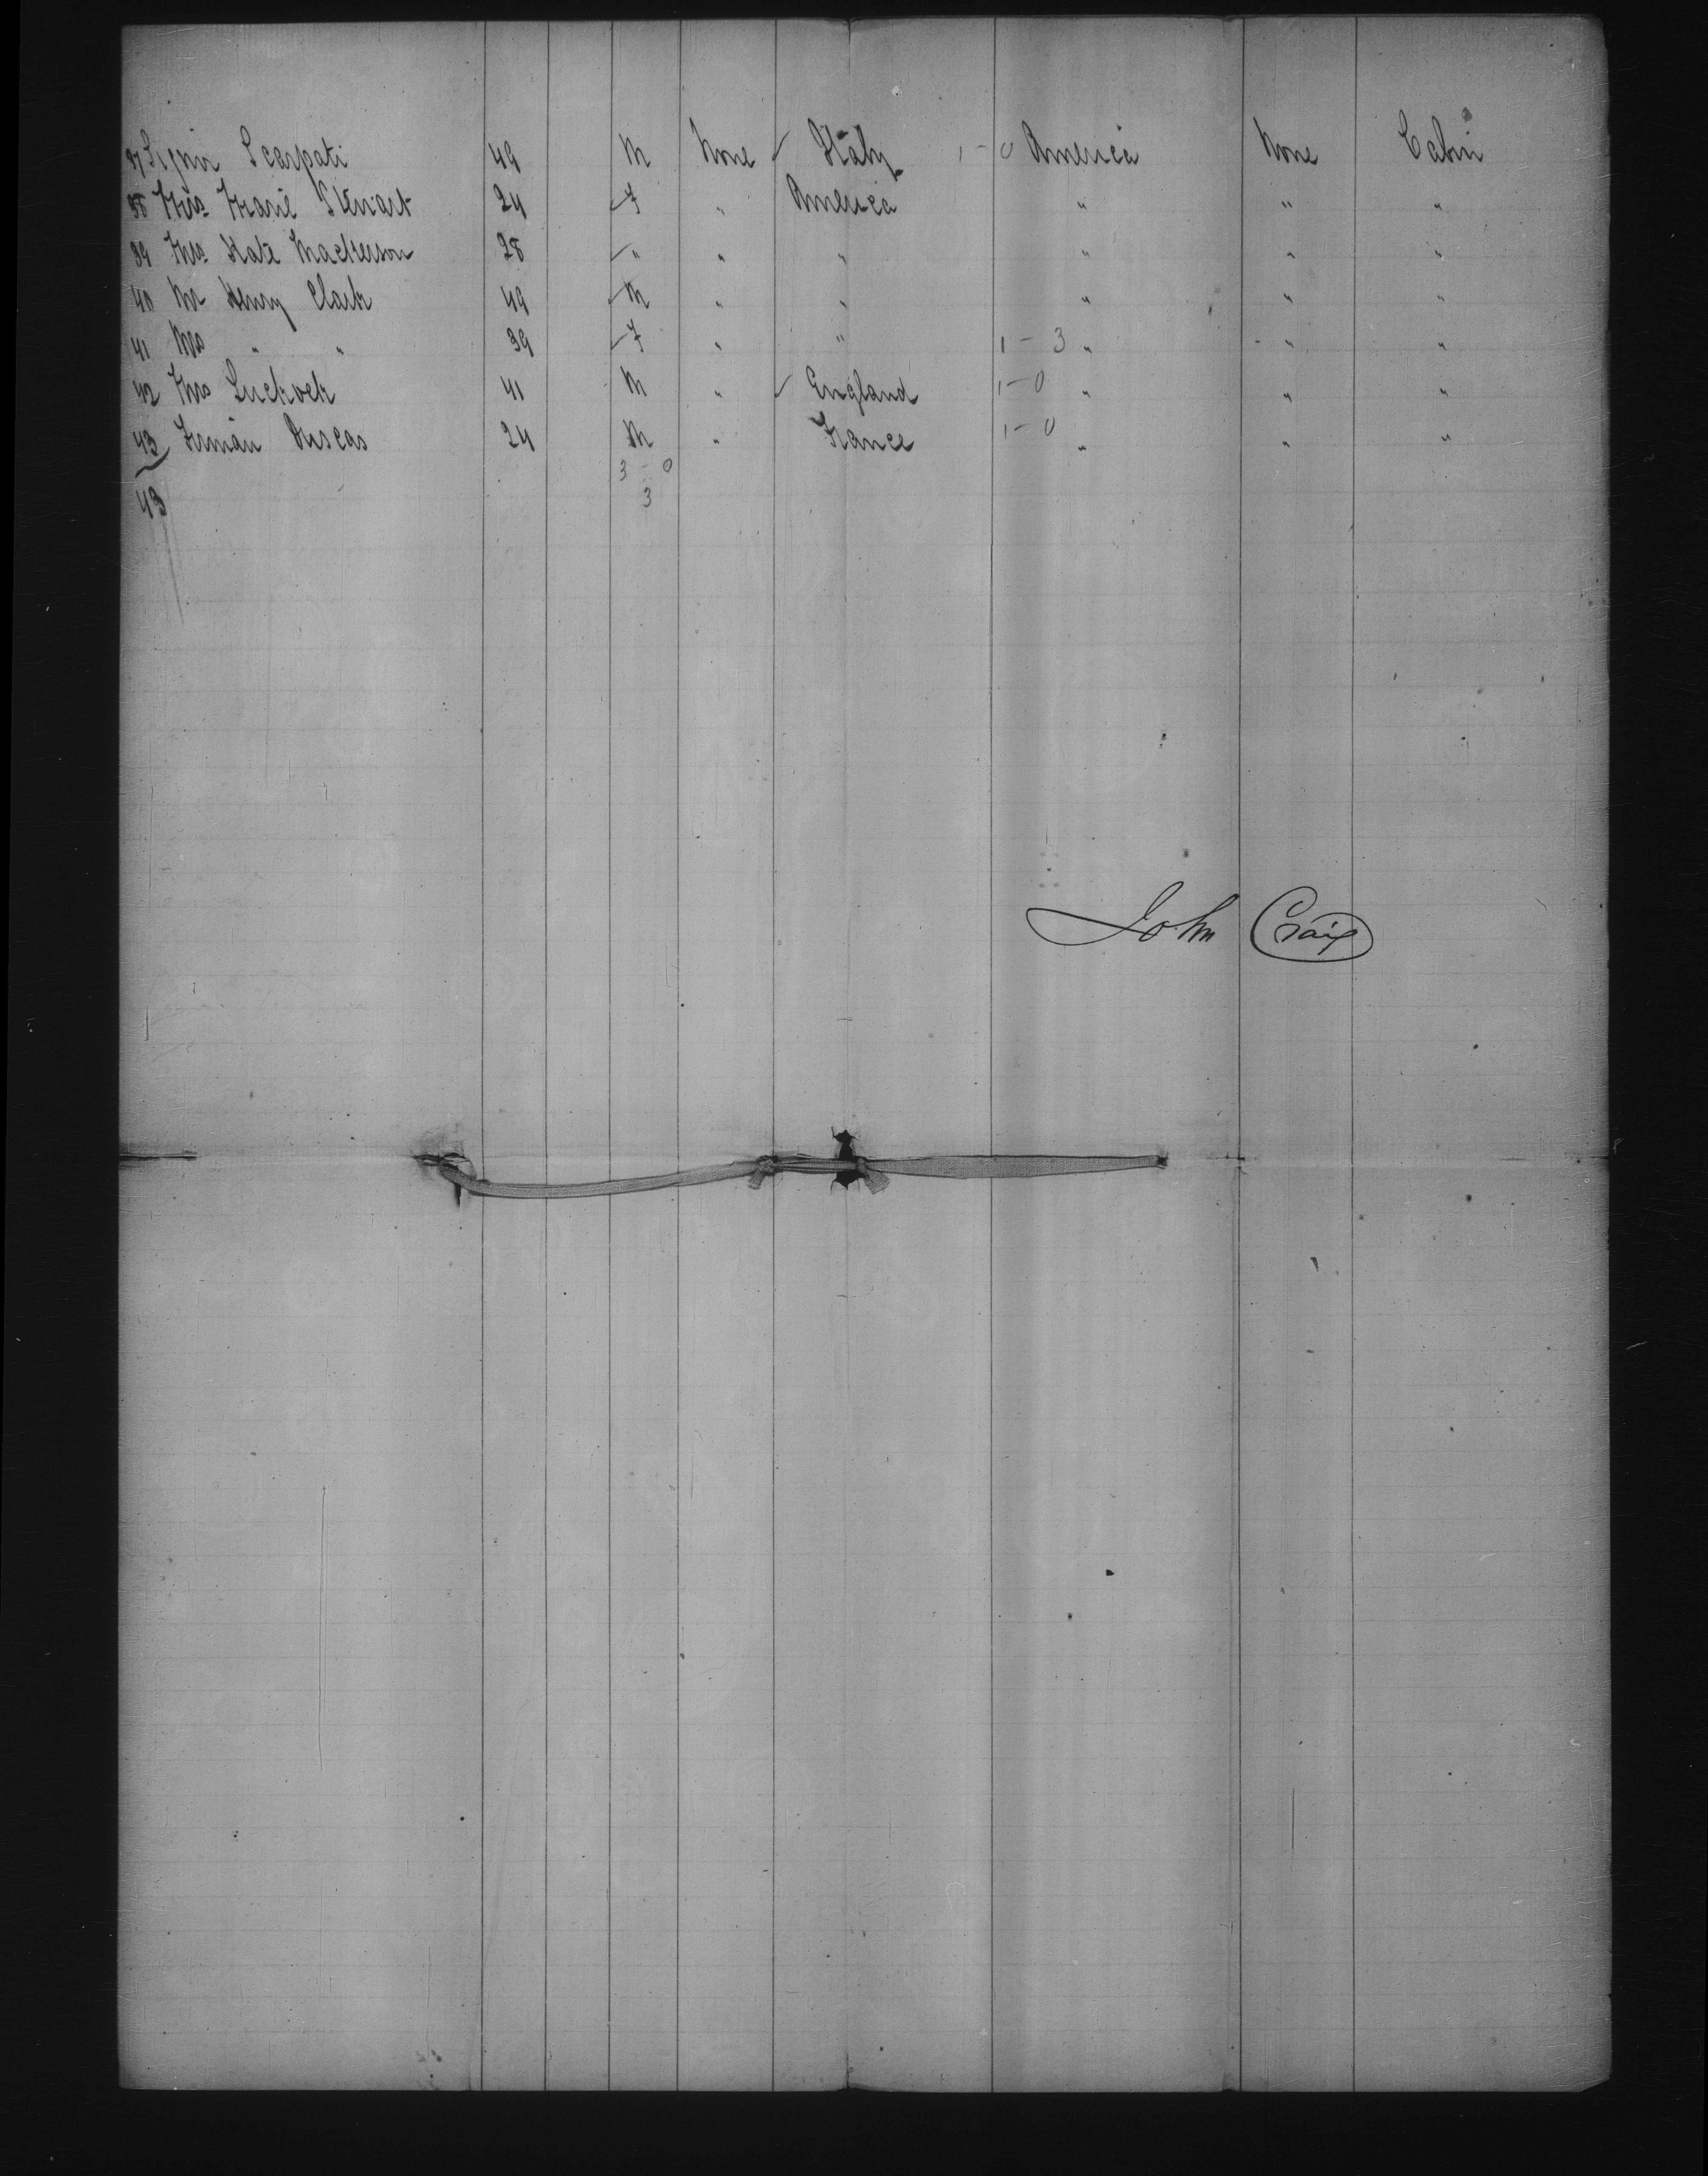 37 Signor Scarpati 49 M None ✓ Italy 1-0 America None Cabin
38 Miss Marie Stewart 24 ✓ F " America " " "
39 Mrs Kate Mackerson 28 ✓ " " " " " "
40 Mr Henry Clark 49 ✓ M " " " " "
41 Mrs " " 39 ✓ F " " 1-3 " " "
42 41 M " ✓ England 1-0 " " "
43 24 M " France 1-0 " " "
3-0
43 3
John Craig